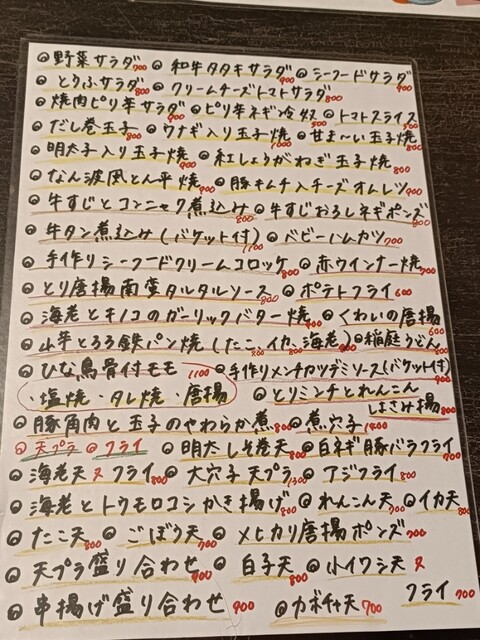 ◎野菜サラダ700 ◎和牛タタキサラダ900 ◎シーフードサラダ900
◎とりふサラダ800 ◎クリームチーズトマトサラダ800
◎焼肉ピリ辛サラダ900 ◎ピリ辛ネギ冷奴500 ◎トマトスライス500
◎だし巻玉子800 ◎ウナギ入り玉子焼1000 ◎甘ま〜い玉子焼800
◎明太子入り玉子焼900 ◎紅しょうがねぎ玉子焼800
◎なん波風とん平焼900 ◎豚キムチ入チーズオムレツ900
◎牛すじとコンニャク煮込み800 ◎牛すじおろしネギポンズ800
◎牛タン煮込み(バケット付)1100 ◎ベビーハムカツ700
◎手作りシーフードクリームコロッケ800 ◎赤ウインナー焼700
◎とり唐揚南蛮タルタルソース800 ◎ポテトフライ600
◎海老とキノコのガーリックバター焼900 ◎くわいの唐揚600
◎山芋とろろ鉄パン焼(たこ、イカ、海老)800 ◎稲庭うどん800
◎ひな鳥骨付モモ1100 ◎手作りメンチカツデミソース(バケット付)900
・塩焼・タレ焼・唐揚 ◎とりミンチとれんこんしまさみ揚800
◎豚角肉と玉子のやわらか煮800 ◎煮穴子1400
◎天プラ ◎フライ ◎明太しそ巻天800 ◎白ネギ豚バラフライ700
◎海老天又フライ800 ◎大穴子天プラ1300 ◎アジフライ800
◎海老とトウモロコシかき揚げ800 ◎れんこん天700 ◎イカ天800
◎たこ天800 ◎ごぼう天700 ◎メヒカリ唐揚ポンズ700
◎天プラ盛り合わせ900 ◎白子天800 ◎小イワシ天又フライ700
◎串揚げ盛り合わせ900 ◎カボチャ天700